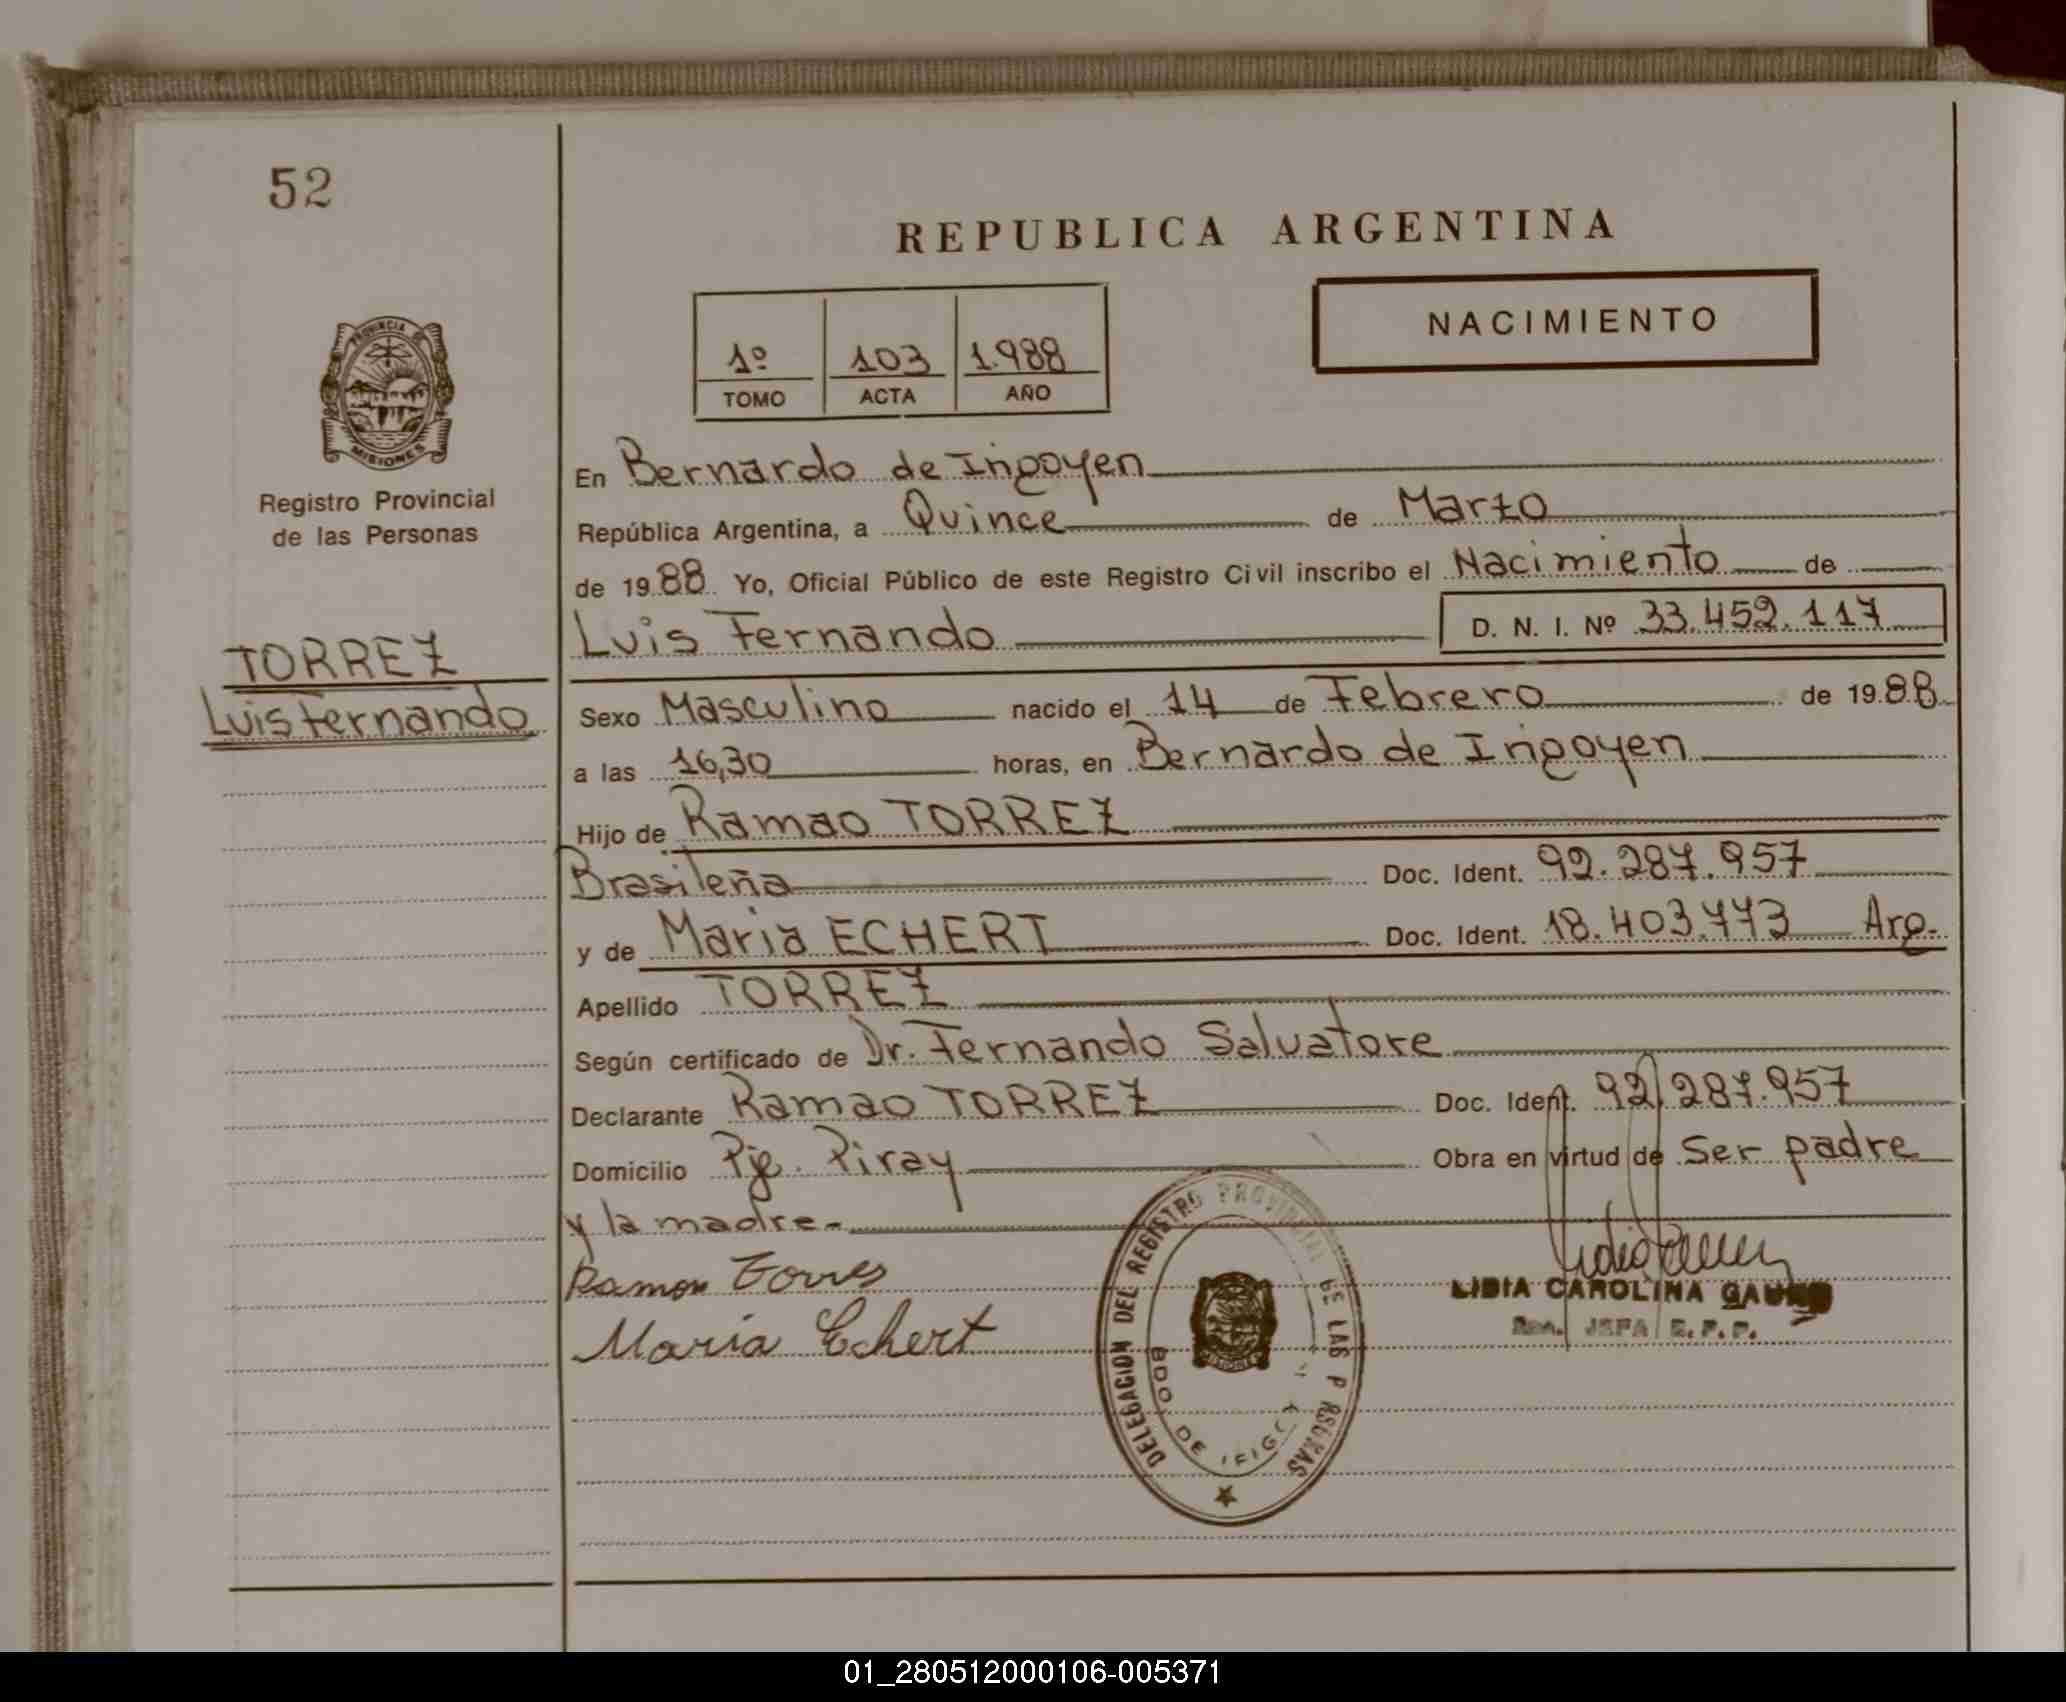 52
REPUBLICA ARGENTINA
NACIMIENTO
1º 103 1.988
TOMO ACTA AÑO
PROVINCIA DE
MISIONES
Registro Provincial
de las Personas
TORREZ
Luis Fernando
En Bernardo de Irigoyen
República Argentina, a Quince de Marzo
de 19 88 Yo, Oficial Público de este Registro Civil inscribo el Nacimiento de
Luis Fernando D. N. I. Nº 33.452.117
Sexo Masculino nacido el 14 de Febrero de 19 88
a las 16,30 horas, en Bernardo de Irigoyen
Hijo de Ramao TORREZ
Brasileña Doc. Ident. 92.287.957
y de Maria ECHERT Doc. Ident. 18.403.773 Arg.
Apellido TORREZ
Según certificado de Dr. Fernando Salvatore
Declarante Ramao TORREZ Doc. Ident. 92.287.957
Domicilio Pje. Piray Obra en virtud de Ser padre
y la madre.-
Ramon Torres
Maria Echert
DELEGACION DEL REGISTRO PROVINCIAL DE LAS P RSONAS
BDO DE
MISIONES
LIDIA CAROLINA
JEFA R. P. P.
01_280512000106-005371